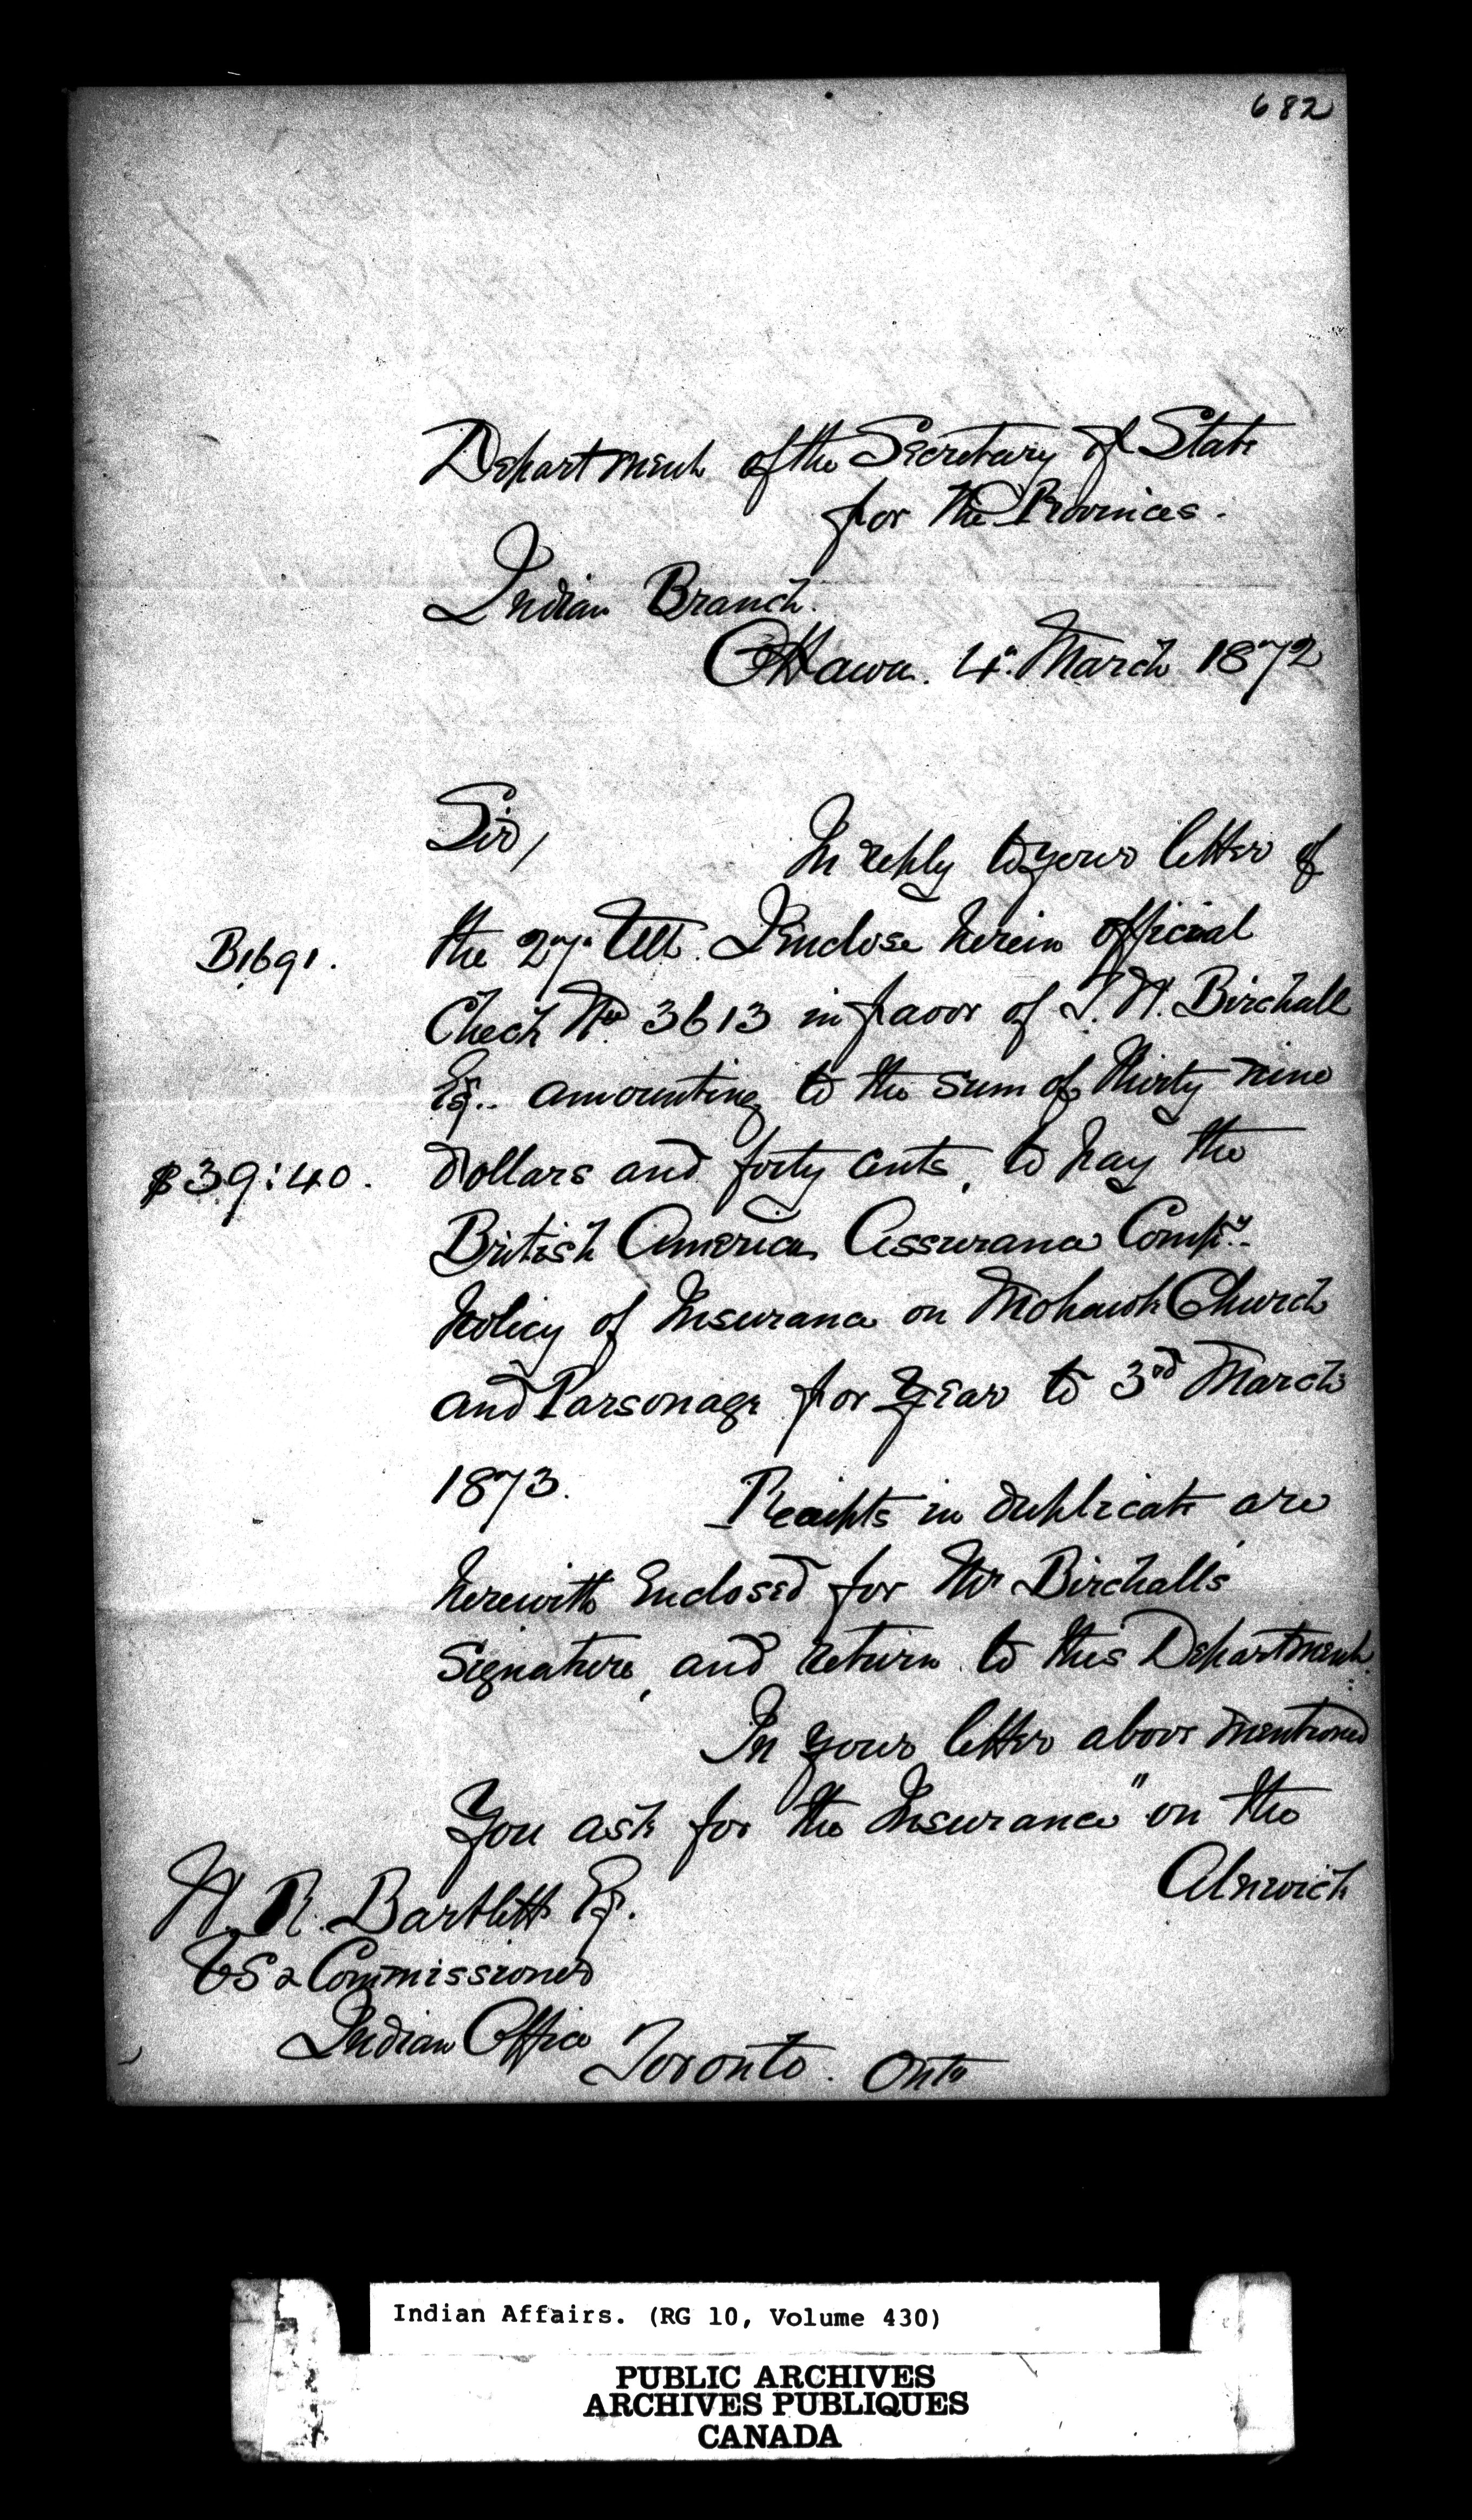 682
Department of the Secretary of State
for the Provinces.
Indian Branch.
Ottawa. 4th March 1872
Sir,
In reply to your letter of
B1691.
the 27th Ulto. I Enclose herein official
Check No 3613 in favor of T. W. Birchall
Esq.. amounting to the sum of thirty nine
$39:40.
dollars and forty cents, to pay the
British America Assurance Compy.
Policy of Insurance on Mohawk Church
and Parsonage for Year to 3rd March
1873.
Receipts in duplicate are
herewith Enclosed for Mr Birchall's
Signature, and return to this Department.
In your letter above mentioned
You ask for "the Insurance" on the
Alnwick
W. R. Bartlett Esq.
VS & Commissioner
Indian Office
Toronto. Onto
Indian Affairs. (RG 10, Volume 430)
PUBLIC ARCHIVES
ARCHIVES PUBLIQUES
CANADA